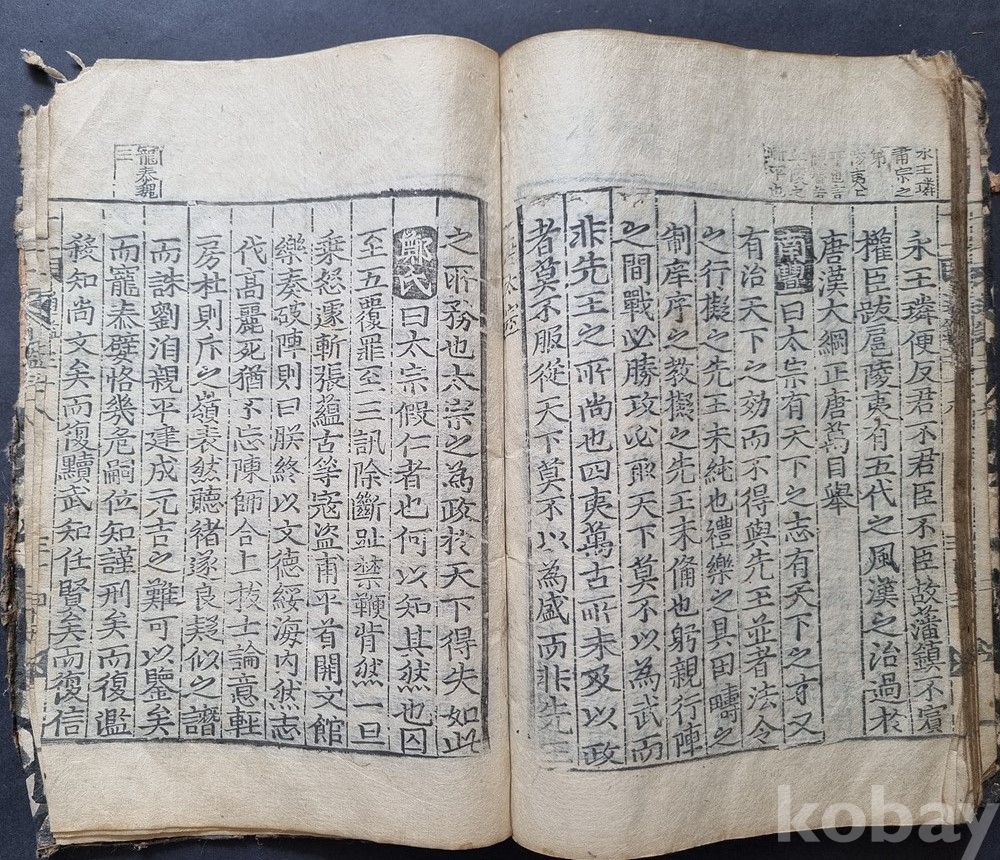 永王璘
肅宗之
第
永王璘便反君不君臣不臣故藩鎮不賓
權臣跋扈陵夷有五代之風漢之治過於
唐漢大綱正唐萬目舉
南豐曰太宗有天下之志有天下之才又
有治天下之効而不得與先王並者法令
之行擬之先王未純也禮樂之具田疇之
制庠序之教擬之先王未俻也躬親行陣
之間戰必勝攻必尅天下莫不以為武而
非先王之所尚也四夷萬古所未及以政
者莫不服從天下莫不以為盛而非先王
之所務也太宗之為政於天下得失如此
鄭氏曰太宗假仁者也何以知其然也囚
至五覆罪至三訊除斷趾禁鞭背然一旦
乗怒遽斬張蘊古等寇盜甫平首開文館
樂奏破陣則曰朕終以文德綏海内然志
代高麗死猶不忘陳師合上拔士論意輕
房杜則斥之嶺表然聽褚遂良疑似之譖
而誅劉洎親平建成元吉之難可以鑒矣
而寵泰嬖恪幾危嗣位知謹刑矣而復濫
殺知尚文矣而復黷武知任賢矣而復信
寵泰魏
王